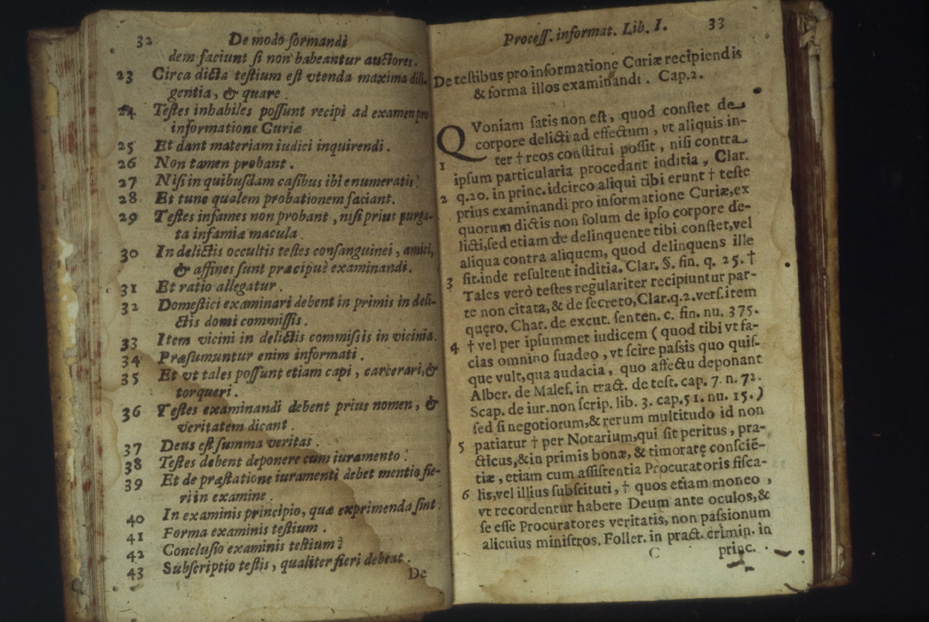 32 De modo formandi
dem faciunt si non habeantur auctores.
23 Circa dicta testium est vtenda maxima dili-
gentia, & quare.
24 Testes inhabiles possunt recipi ad examen pro
informatione Curiæ
25 Et dant materiam iudici inquirendi.
26 Non tamen probant.
27 Nisi in quibusdam casibus ibi enumeratis.
28 Et tunc qualem probationem faciant.
29 Testes infames non probant, nisi prius purga-
ta infamiæ macula
30 In delictis occultis testes consanguinei, amici,
& affines sunt præcipuè examinandi.
31 Et ratio allegatur.
32 Domestici examinari debent in primis in deli-
ctis domi commissis.
33 Item vicini in delictis commissis in vicinia.
34 Præsumuntur enim informati.
35 Et vt tales possunt etiam capi, carcerari, &
torqueri.
36 Testes examinandi debent prius nomen, &
veritatem dicant.
37 Deus est summa veritas.
38 Testes debent deponere cum iuramento.
39 Et de præstatione iuramenti debet mentio fie-
ri in examine.
40 In examinis principio, quæ exprimenda sint.
41 Forma examinis testium.
42 Conclusio examinis testium?
43 Subscriptio testis, qualiter fieri debeat.
De
Process. informat. Lib. I. 33
De testibus pro informatione Curiæ recipiendis
& forma illos examinandi. Cap.2.
QVoniam satis non est, quod constet de
corpore delicti ad effectum, vt aliquis in-
1 ter † reos constitui possit, nisi contra
ipsum particularia procedant inditia, Clar.
2 q.20. in princ. idcirco aliqui tibi erunt † teste
prius examinandi pro informatione Curiæ, ex
quorum dictis non solum de ipso corpore de-
licti, sed etiam de delinquente tibi constet, vel
aliqua contra aliquem, quod delinquens ille
3 sit. inde resultent inditia. Clar. §. fin. q. 25. †
Tales verò testes regulariter recipiuntur par-
te non citata, & de secreto, Clar. q.2. vers. item
quęro. Char. de excut. senten. c. fin. nu. 375.
4 † vel per ipsummet iudicem (quod tibi vt fa-
cias omnino suadeo, vt scire passis quo quis-
que vult, qua audacia, quo affectu deponant
Alber. de Malef. in tract. de test. cap. 7. n. 72.
Scap. de iur. non scrip. lib. 3. cap. 51. nu. 15.)
sed si negotiorum, & rerum multitudo id non
5 patiatur † per Notarium, qui sit peritus, pra-
cticus, & in primis bonæ, & timoratę consciē-
tiæ, etiam cum assistentia Procuratoris fisca-
6 lis, vel illius substituti, † quos etiam moneo,
vt recordentur habere Deum ante oculos, &
se esse Procuratores veritatis, non passionum
alicuius ministros. Foller. in pract. crimin. in
C princ.